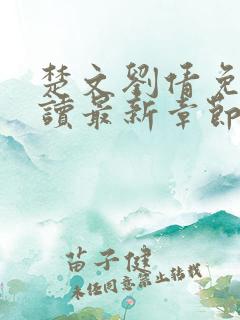 楚文劉倩免
讀最新章節
苗子健
未经同意禁止转载